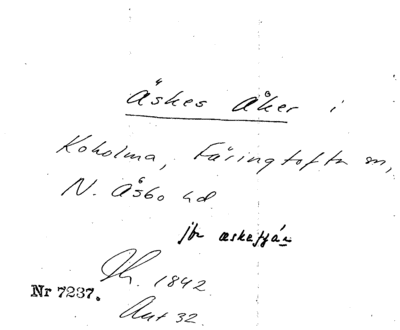 Äskes Åker i
Koholma, Färingtofta sn,
N. Åsbo hd
jfr æskefjár
1842
Nr 7237.
Ant 32